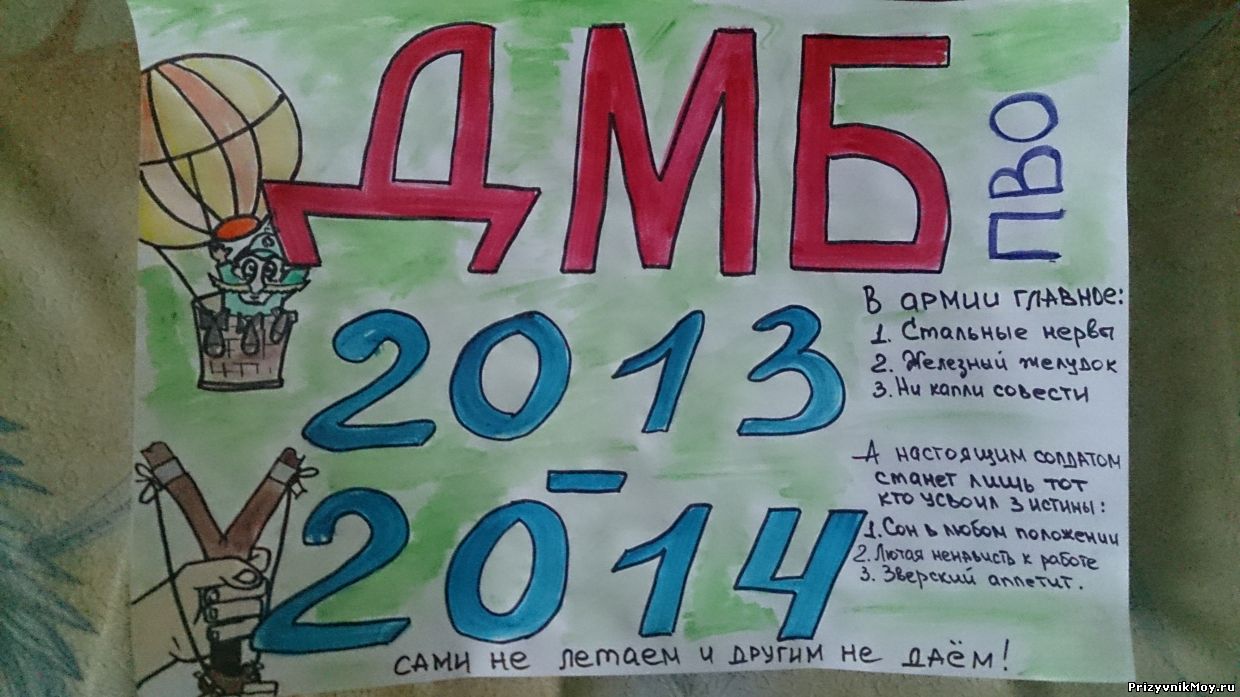 ДМБ
ПВО
2013
-
2014
В армии главное:
1. Стальные нервы
2. Железный желудок
3. Ни капли совести
А настоящим солдатом
станет лишь тот
кто усвоил 3 истины:
1. Сон в любом положении
2. Лютая ненависть к работе
3. Зверский аппетит.
сами не летаем и другим не даём!
PrizyvnikMoy.ru